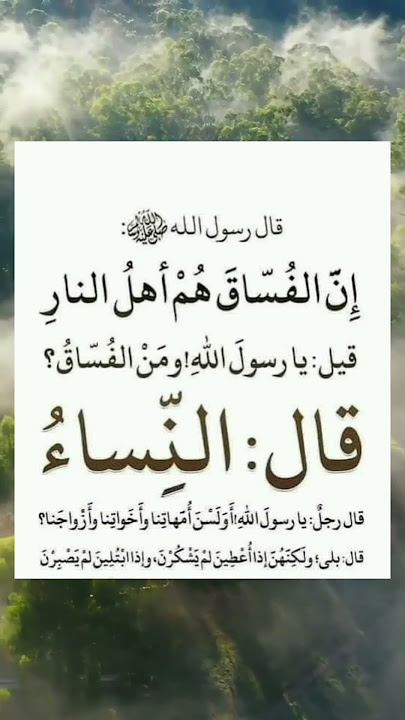 قال رسول الله ﷺ:
إِنّ الفُسّاقَ هُمْ أهلُ النارِ
قيل: يا رسولَ اللهِ! ومَنْ الفُسّاقُ؟
قال: النِّساءُ
قال رجلٌ: يا رسولَ اللهِ! أَوَلَسْنَ أُمَهاتِنا وأَخَواتِنا وأَزْواجَنا؟
قال: بلى؛ ولَكِنَهُنَ إذا أُعْطِينَ لمْ يَشْكُرْنَ، وإذا ابْتُلِينَ لمْ يَصْبِرْنَ